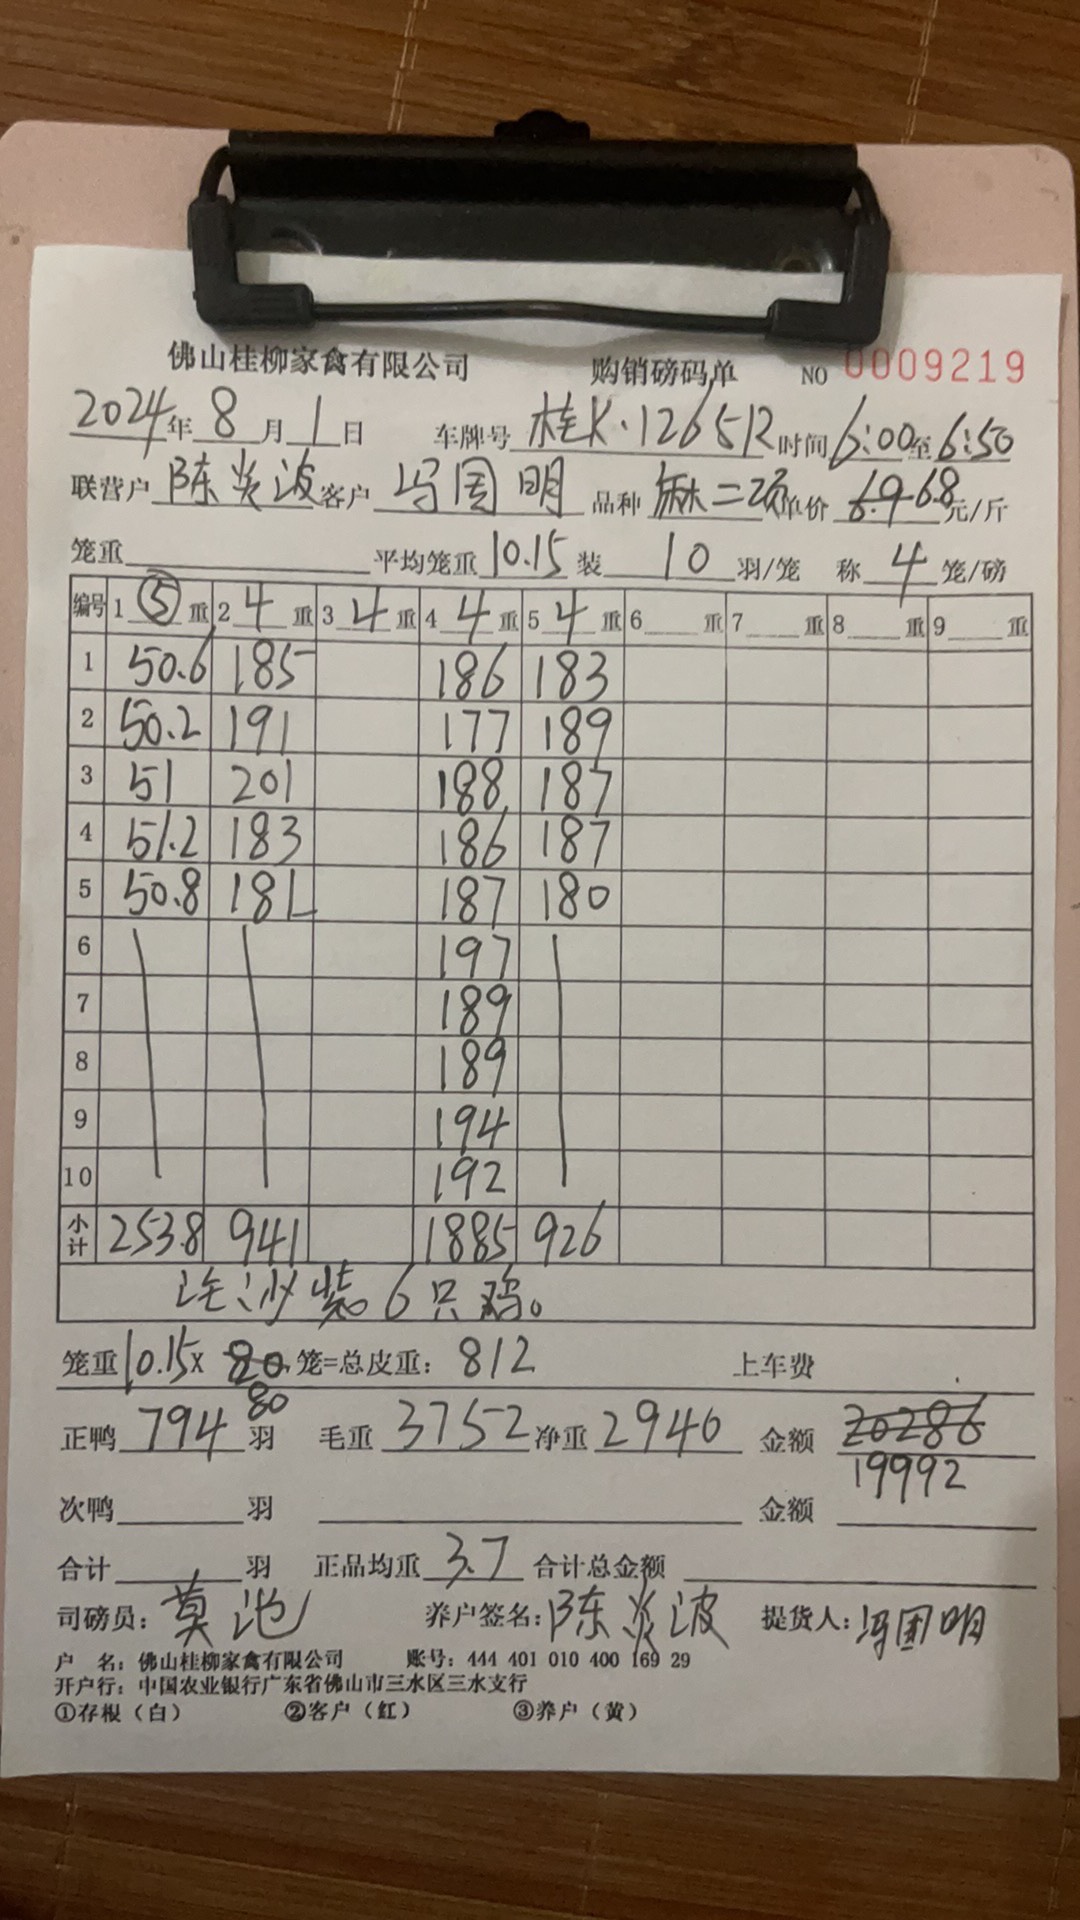 佛山桂柳家禽有限公司 购销磅码单 NO 0009219
2024年 8 月 1 日 车牌号 桂K·12651R 时间 6:00 至 6:50
联营户 陈炎波 客户 冯国明 品种 麻二项 单价 6.9 6.8 元/斤
笼重 平均笼重 10.15 装 10 羽/笼 称 4 笼/磅
编号 1 ⑤ 重 2 4 重 3 4 重 4 4 重 5 4 重 6 重 7 重 8 重 9 重
1 50.6 185 186 183
2 50.2 191 177 189
3 51 201 188 187
4 51.2 183 186 187
5 50.8 181 187 180
6 197
7 189
8 189
9 194
10 192
小计 253.8 941 1885 926
注:少装6只鸡。
笼重 10.15 x 80 笼=总皮重: 812 上车费
80
正鸭 794 羽 毛重 3752 净重 2940 金额 20286
19992
次鸭 羽 金额
合计 羽 正品均重 3.7 合计总金额
司磅员: 莫池 养户签名: 陈炎波 提货人: 冯国明
户 名: 佛山桂柳家禽有限公司 账号: 444 401 010 400 169 29
开户行: 中国农业银行广东省佛山市三水区三水支行
①存根（白） ②客户（红） ③养户（黄）